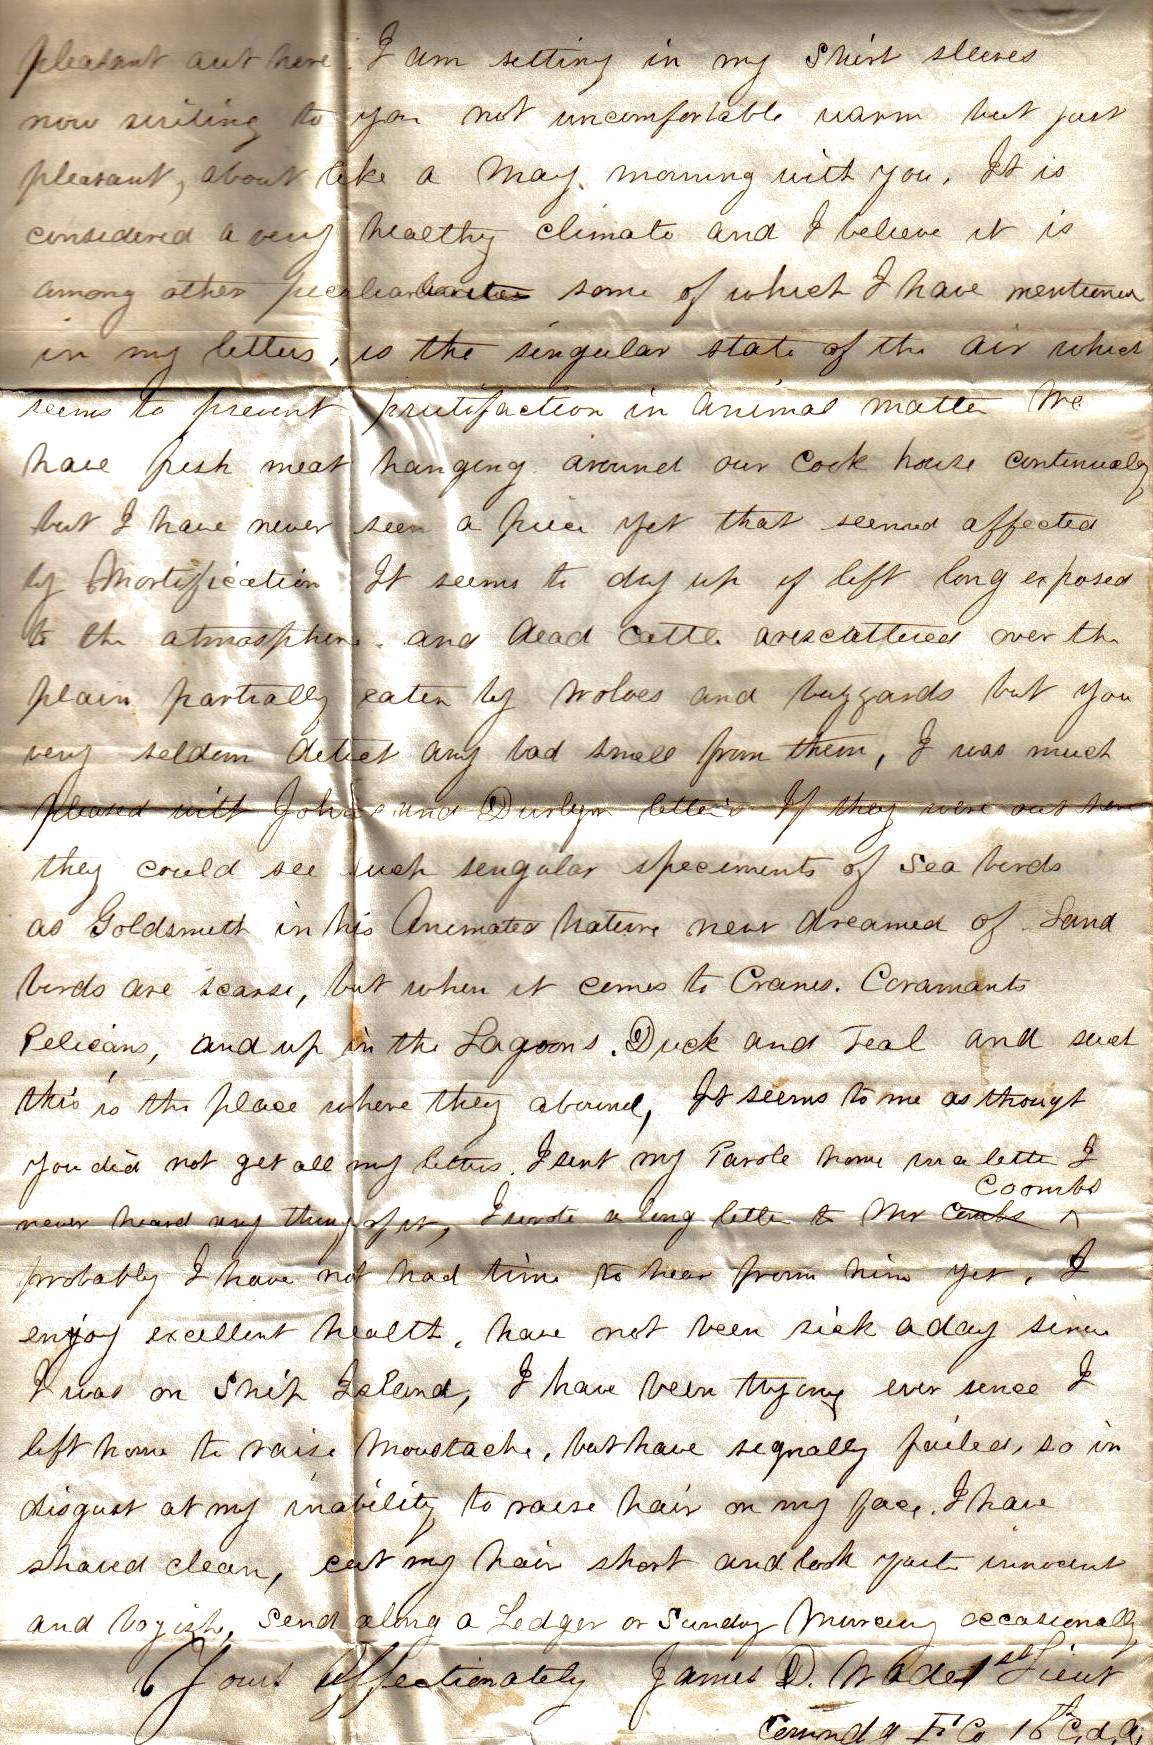 pleasant out here. I am setting in my Shirt sleeves
now writing to you not uncomfortable warm but just
pleasant, about like a May morning with you. It is
considered a very healthy climate and I believe it is
among other some of which I have mentioned
in my letters, is the singular state of the air which
seems to prevent prutifaction in animal matter We
have fresh meat hanging around our Cook house continually
but I have never seen a piece yet that seemed affected
by Mortification It seems to dry up if left long exposed
to the atmosphere. and dead Cattle are scattered over the
plain partially eaten by wolves and buzzards but you
very seldom detect any bad smell from them, I was much
pleased with Johns and letters If they were out here
they could see such sengular speciments of Sea birds
as Goldsmith in his Animated Nature never dreamed of. Land
birds are scarse, but when it comes to Cranes. Coramants
Pelicans, and up in the Lagoons. Duck and Teal and such
this is the place where they abound, It seems to me as thougt
you did not get all my letters. I sent my Parole home in a letter I
Coombs
never heard any thing of it, I wrote a long letter to Mr Combs ^
probably I have not had time to hear from him yet. I
enjoy excellent health, have not been sick a day since
I was on Ship Island, I have been trying ever sence I
left home to raise Moustache, but have signally failed, so in
disgust at my inability to raise hair on my face. I have
shaved clean, cut my hair short and look quite innocent
and boyish, Send along a Ledger or Sunday Mercury occasionally
Yours Affectionately James D. Wade 1st Lieut
Comndg F Co 16th C, d, A,